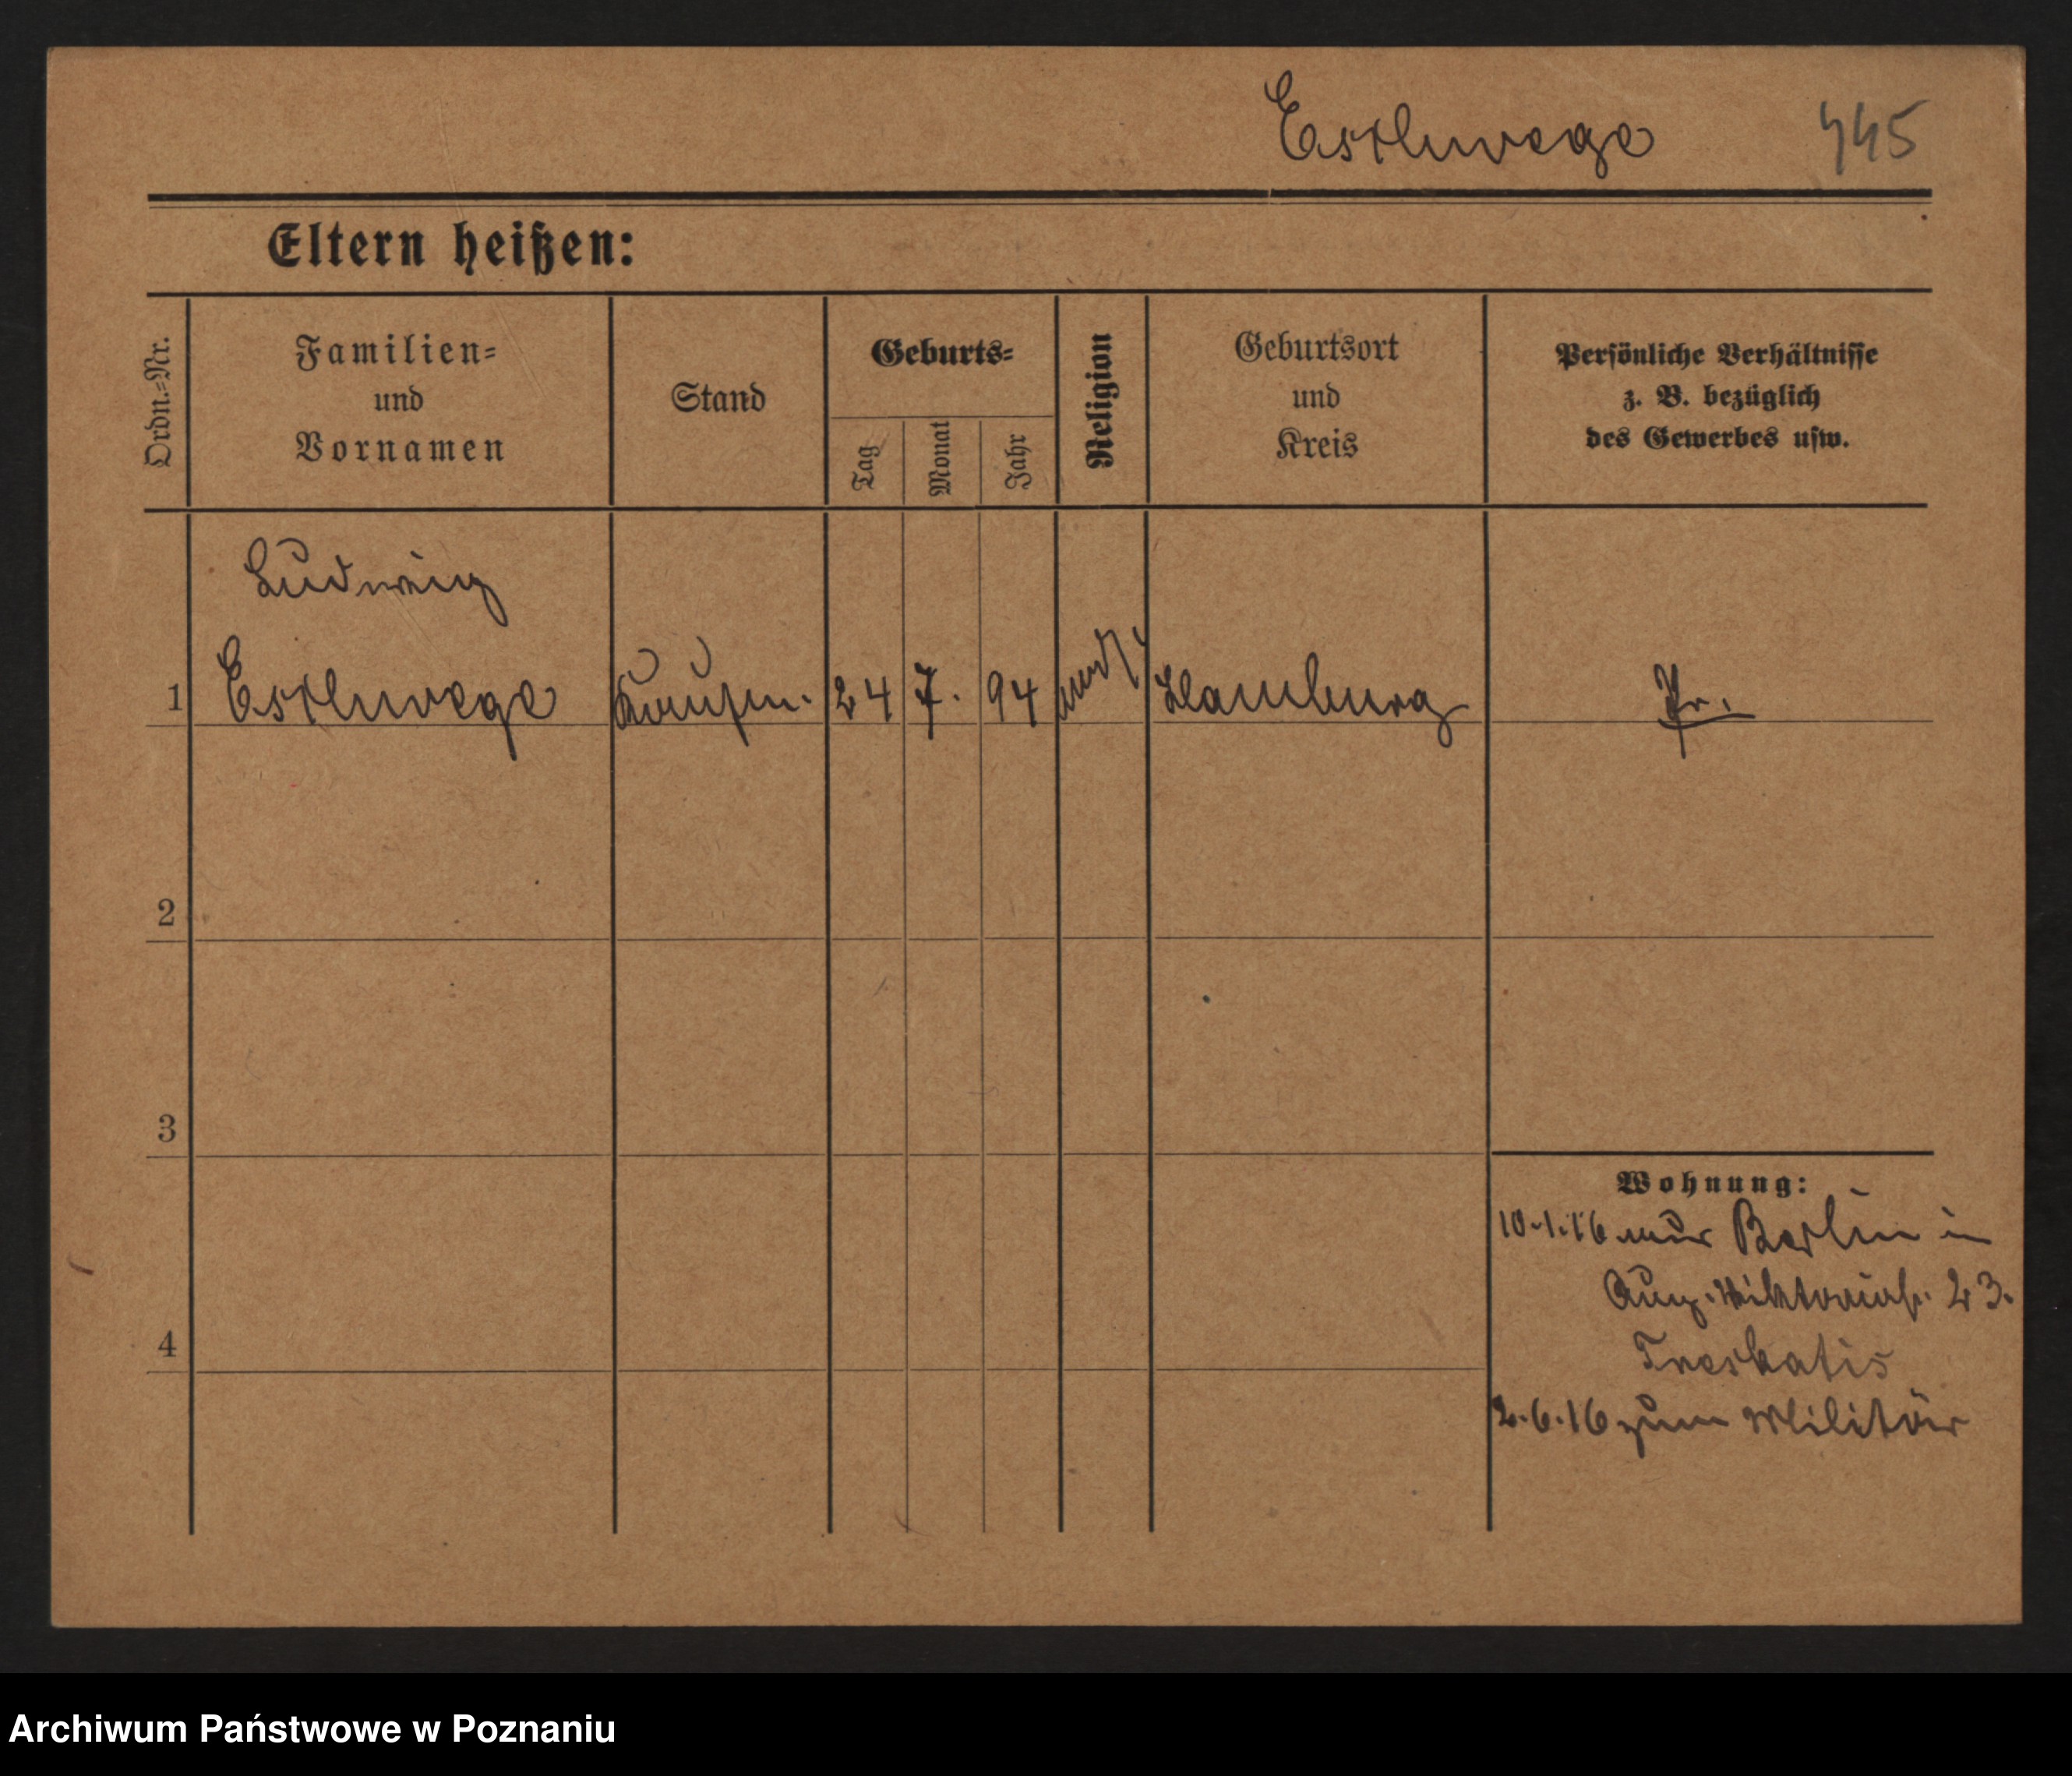 Esthwege 445
Eltern heißen:
Ordn.=Nr.
Familien=
und
Vornamen
Stand
Geburts=
Tag
Monat
Jahr
Religion
Geburtsort
und
Kreis
Persönliche Verhältnisse
z. B. bezüglich
des Gewerbes usw.
Ludwig
1 Kaufm. 24 7. 94 Hamburg Pr.
2
3
4
Wohnung:
10.1.16 aus Berlin in
Aug. Viktoriastr. 23.
Treskatis
2.6.16 zum Militär
Archiwum Państwowe w Poznaniu